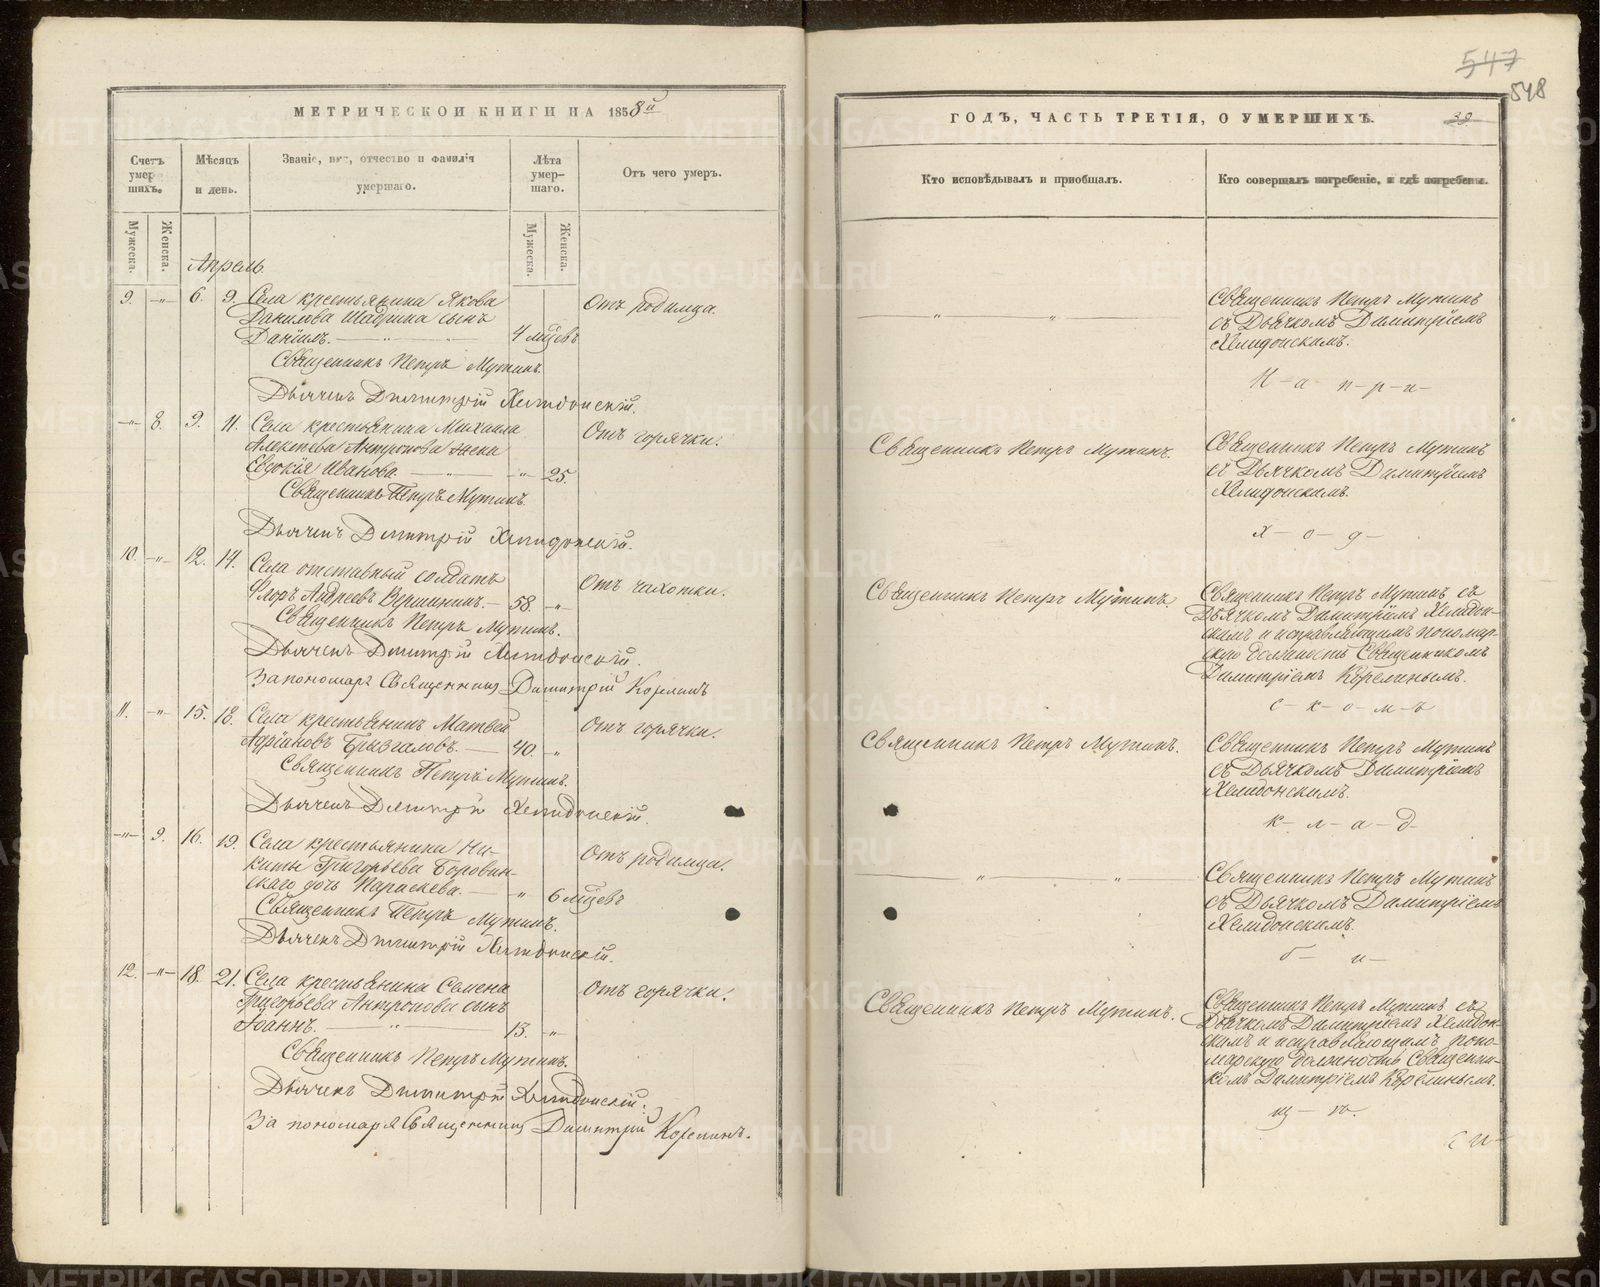 547
548
МЕТРИЧЕСКОЙ КНИГИ НА 1858й
Счетъ умершихъ.
Мѣсяцъ и день.
Званіе, имя, отчество и фамилія умершаго.
Лѣта умершаго.
Отъ чего умеръ.
Мужеска.
Женска.
Мужеска.
Женска.
Апрель.
9. —"— 6. 9. Села крестьянина Якова
Данилова Шадрина сынъ
Даніилъ. — " — " 4 мѣсцевъ
Отъ родимца.
Священникъ Петръ Мутинъ.
Дьячекъ Димитрій Хелидонскій.
—"— 8. 9. 11. Села крестьянина Михаила
Алексѣева Антропова жена
Евдокія Иванова. — " — " 25.
Отъ горячки.
Священникъ Петръ Мутинъ.
Дьячекъ Дмитрій Хелидонскій.
10. —"— 12. 14. Села отставный солдатъ
Флоръ Андреевъ Вершининъ. — 58. —"—
Отъ чахотки.
Священникъ Петръ Мутинъ.
Дьячекъ Дмитрій Хелидонскій.
За пономаря Священникъ Димитрій Корелинъ
11. —"— 15. 18. Села крестьянинъ Матвей
Адріановъ Брызгаловъ. — 40. "
Отъ горячки.
Священникъ Петръ Мутинъ.
Дьячекъ Дмитрій Хелидонскій.
—"— 9. 16. 19. Села крестьянина Ни-
киты Григорьева Боровин-
скаго дочь Параскева. — " 6 мѣсцевъ
Отъ родимца.
Священникъ Петръ Мутинъ.
Дьячекъ Дмитрій Хелидонскій.
12. —"— 18. 21. Села крестьянина Семена
Григорьева Антропова сынъ
Іоаннъ. — " — 13. —"—
Отъ горячки.
Священникъ Петръ Мутинъ.
Дьячекъ Димитрій Хелидонскій.
За пономаря Священникъ Димитрій Корелинъ.
ГОДЪ, ЧАСТЬ ТРЕТІЯ, О УМЕРШИХЪ.
39.
Кто исповѣдывалъ и пріобщалъ.
Кто совершалъ погребеніе, и гдѣ погребены.
— " — " —
Священникъ Петръ Мутинъ
съ Дьячкомъ Димитріемъ
Хелидонскимъ.
Н-а п-р-и-
Священникъ Петръ Мутинъ.
Священникъ Петръ Мутинъ
съ Дьячкомъ Димитріемъ
Хелидонскимъ.
х-о-д-
Священникъ Петръ Мутинъ.
Священникъ Петръ Мутинъ съ
Дьячкомъ Димитріемъ Хелидон-
скимъ и исправляющимъ пономар-
скую должность Священникомъ
Димитріемъ Корелинымъ.
с-к-о-м-ъ
Священникъ Петръ Мутинъ.
Священникъ Петръ Мутинъ
съ Дьячкомъ Димитріемъ
Хелидонскимъ.
к-л-а-д-
— " — " —
Священникъ Петръ Мутинъ
съ Дьячкомъ Димитріемъ
Хелидонскимъ.
б- и-
Священникъ Петръ Мутинъ.
Священникъ Петръ Мутинъ съ
Дьячкомъ Димитріемъ Хелидон-
скимъ и исправляющимъ поно-
марскую должность Священни-
комъ Димитріемъ Корелинымъ.
щ-ѣ.
METRIKI.GASO-URAL.RU